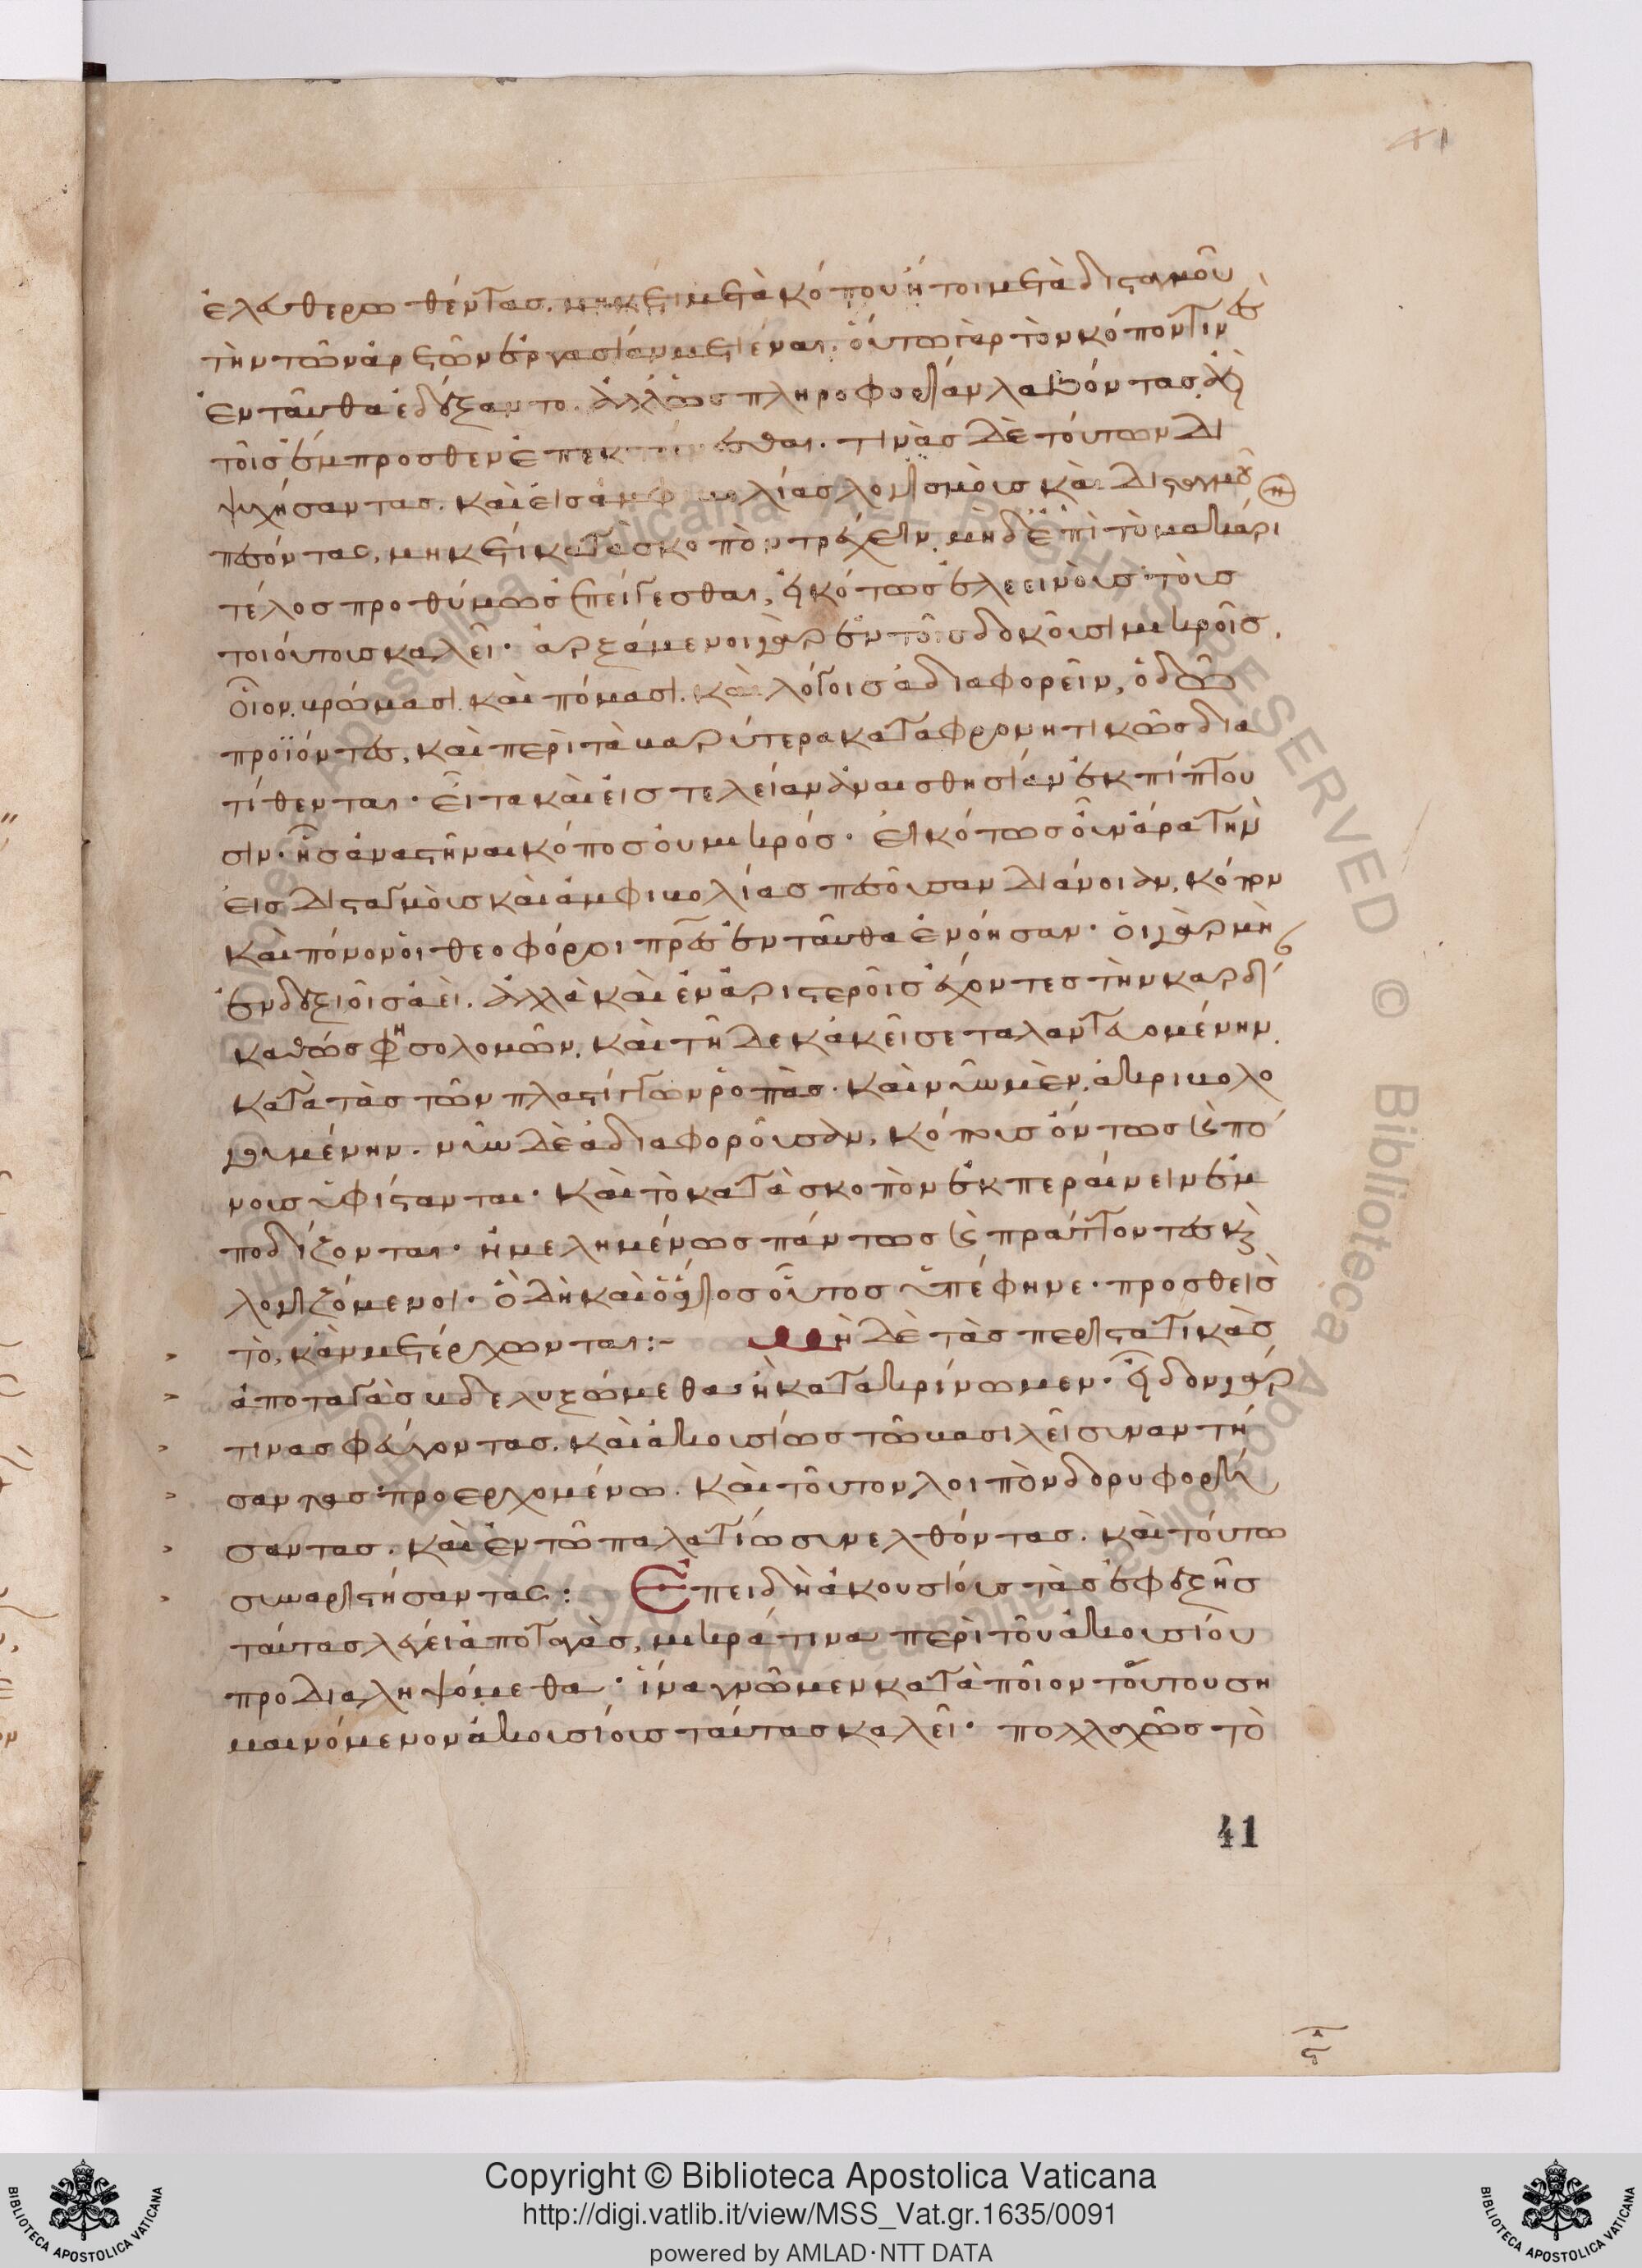 41
ἐλευθερωθέντας. μηκέτι μετὰ κόπου ἤτοι μετὰ δισταγμοῦ
τὴν τῶν ἀρετῶν ἐργασίαν μετιέναι. οὕτω γὰρ τὸν κόπον τινὲς
ἐνταῦθα ἐδέξαντο. ἄλλως πληροφορίαν λαβόντας ἀεὶ
τοῖς ἔμπροσθεν ἐπεκτείνεσθαι. τινὰς δὲ τούτων δι
ψυχήσαντας. καὶ εἰς ἀμφιβολίας λογισμοὺς καὶ δισταγμοὺς
πεσόντας, μηκέτι κατὰ σκοπὸν τρέχειν. μηδὲ ἐπὶ τὸ μακάρι
τέλος προθύμως ἐπείγεσθαι, εἰκότως ἐλεεινοὺς τοὺς
τοιούτους καλεῖ· ἀρξάμενοι γὰρ ἐν τοῖς δοκοῦσι μικροῖς,
οἷον. βρώμασι. καὶ πόμασι. καὶ λόγοις ἀδιαφορεῖν, ὁδῶ
προϊόντες, καὶ περὶ τὰ βαρύτερα καταφρονητικῶς δια
τίθενται· εἶτα καὶ εἰς τελείαν ἀναισθησίαν ἐκπίπτου
σιν· ἧς ἀναστῆναι κόπος οὐ μικρός· εἰκότως οὖν ἄρα τὴν
εἰς δισταγμοὺς καὶ ἀμφιβολίας πεσοῦσαν διάνοιαν, κόπον
καὶ πόνον οἱ θεοφόροι πρες ἐνταῦθα ἐνόησαν· οἱ γὰρ μὴ
ἐν δεξιοῖς ἀεὶ. ἀλλὰ καὶ ἐν ἀριστεροῖς ἔχοντες τὴν καρδί
καθώς φη σολομῶν. καὶ τῆδε κἀκεῖσε ταλαντευομένην.
κατὰ τὰς τῶν πλαστίγγων ῥοπὰς. καὶ νῦν μὲν, ἀκριβολο
γουμένην. νῦν δὲ ἀδιαφοροῦσαν, κόπους ὄντως καὶ πό
νους ὑφίστανται· καὶ τὸ κατὰ σκοπὸν ἐκπεραίνειν ἐμ
ποδίζονται· ἠμελημένως πάντως καὶ πράττοντες καὶ
λογιζόμενοι· ὃ δὴ καὶ ὁ ἅγιος οὗτος ὑπέφηνε· προσθεὶς
τὸ, κἂν μετέρχωνται:- Μὴ δὲ τὰς περιστατικὰς
ἀποταγὰς βδελυξώμεθα ἢ κατακρίνωμεν· εἶδον γάρ
τινας φεύγοντας. καὶ ἀκουσίως τῶ βασιλεῖ συναντή
σαντας προερχομένω. καὶ τοῦτον λοιπὸν δορυφορή
σαντας. καὶ ἐν τῶ παλατίω συνελθόντας. καὶ τούτω
συναριστήσαντας: Ἐπειδὴ ἀκουσίους τὰς ἐφεξῆς
ταύτας λέγει ἀποταγὰς, μικρά τινα περὶ τοῦ ἀκουσίου
προδιαληψόμεθα· ἵνα γνῶμεν κατὰ ποῖον τούτου ση
μαινόμενον ἀκουσίους ταύτας καλεῖ· πολλαχῶς τὸ
41
Copyright © Biblioteca Apostolica Vaticana
http://digi.vatlib.it/view/MSS_Vat.gr.1635/0091
powered by AMLAD·NTT DATA
BIBLIOTECA APOSTOLICA VATICANA
BIBLIOTECA APOSTOLICA VATICANA